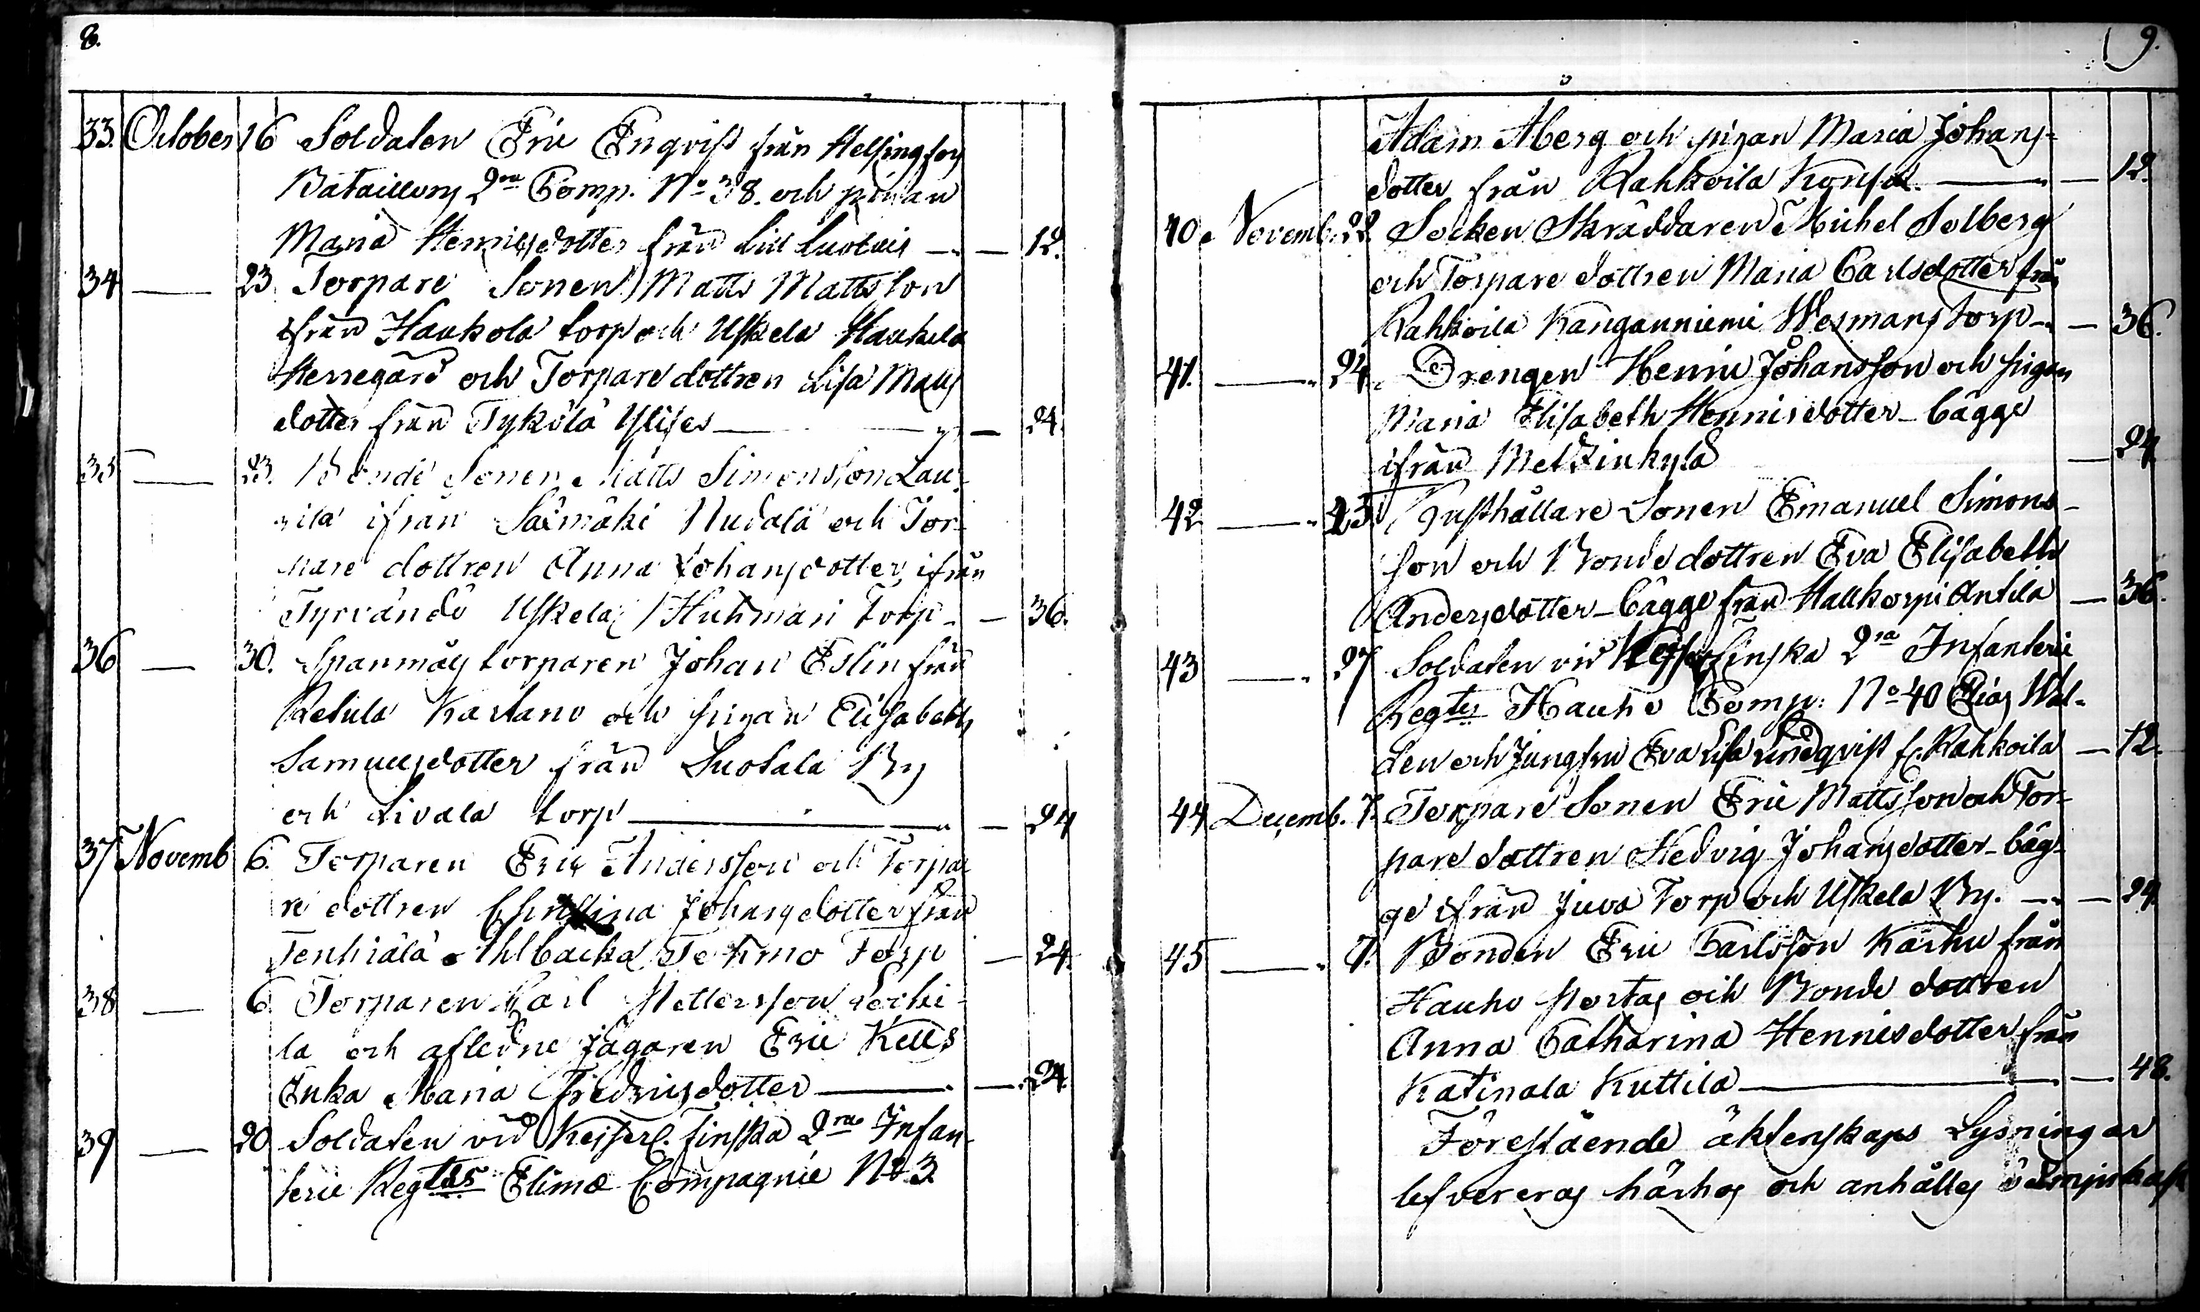 8.
33. October 16 Soldaten Eric Enqvist från Helsingfors
Bataillons 2ra Comp. No 38. och pigan
Maria Henricsdotter från Lill Luolais — 12.
34 — 23. Torpare Sonen Matts Mattsson
ifrån Haukola torp och Uskela Haukela
Herregård och Torpare dottren Lisa Matts
dotter från Tykölä Ylises — 24.
35 — 23. Bonde Sonen Matts Simonsson Lau-
rila ifrån Säämäki Nudala och Tor-
pare dottren Anna Johansdotter ifrån
Tyrvändö Uskela Huhmari Torp — 36.
36 — 30. Spanmåls torparen Johan Eslin från
Retula Kartano och pigan Elisabeth
Samuelsdotter från Suotala By
och Livala torp — 24
37 Novemb 6. Torparen Eric Andersson och Torpa-
re dottren Christina Johansdotter från
Tenhiälä Ahlbacka Torp — 24.
38 — 6. Torparen Carl Pettersson
la och afledne Jägaren Eric Kells
Enka Maria Fredricsdotter — 24.
39 — 20. Soldaten vid Kejserl. Finska 2ra Infan-
terie Regtes Elimæ Compagnie No 3.
9.
Adam Åberg och pigan Maria Johans-
dotter från Rahkoila Konsas. — 12.
40. Novemb. 22. Socken Skräddaren Michel Solberg
och Torpare dottren Maria Carlsdotter från
Rahkoila Kanganniemi Wesmans Torp — 36.
41. — 24. Drengen Henric Johansson och pigan
Maria Elisabeth Henricsdotter bägge
ifrån Metzinkylä — 24
42 — 25. Rusthållare Sonen Emanuel Simons-
son och Bonde dottren Eva Elisabeth
Andersdotter bägge från Hallkorpi Antila — 36.
43 — 27 Soldaten vid Kejserl. Finska 2ra Infanterie
Regtes Hauho Comp. No 40 Elias Wal-
len och Jungfru Eva Lisa Lindqvist f. Rahkoila — 12.
44 Decemb. 7. Torpare Sonen Eric Mattsson och Tor-
pare dottren Hedvig Johansdotter bäg-
ge ifrån Juva Torp och Uskela By. — 24
45 — 7. Bonden Eric Carlsson Karhu från
Hauho och Bonde dottren
Anna Catharina Henricsdotter från
Katinala Kuttila — 48.
Förestående äktenskaps Lysningar
lefvereras härhos och anhålles ödmjukast